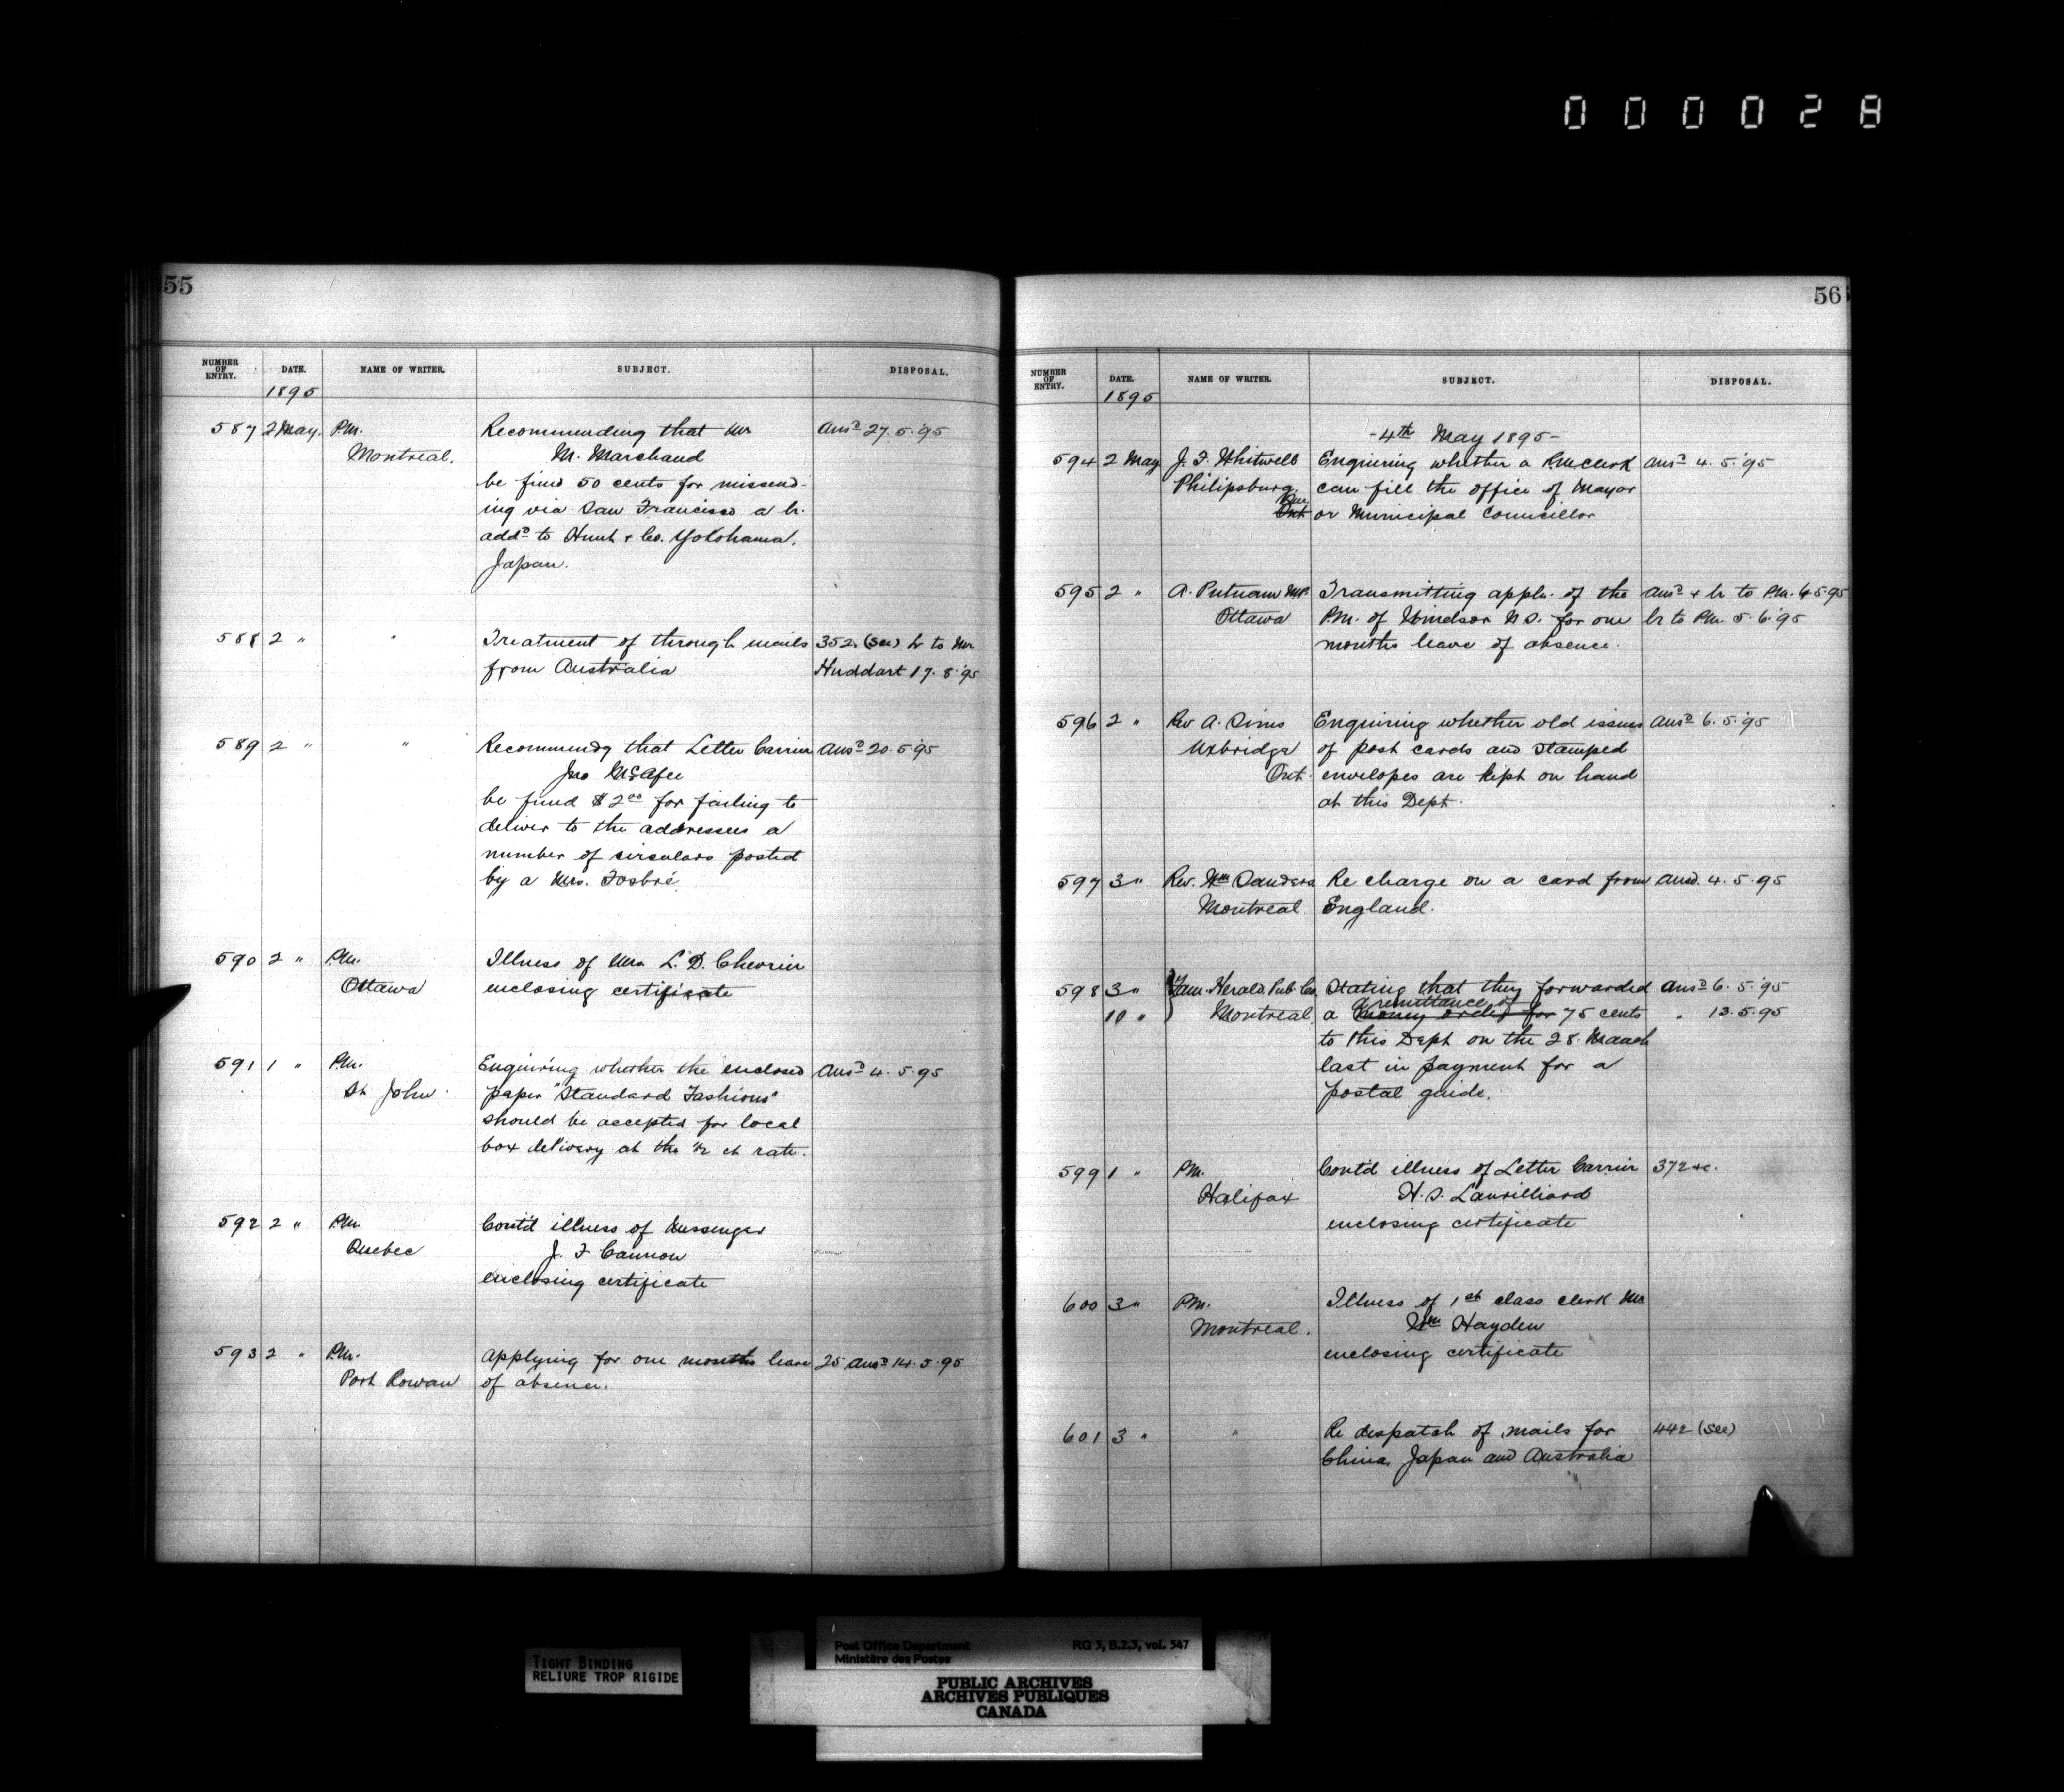 000028
55
NUMBER OF ENTRY. DATE. NAME OF WRITER. SUBJECT. DISPOSAL.
1895
587 2 May. P.M. Recommending that Mr Ansd 27.5.'95
Montreal. M. Marchand
be fined 50 cents for missend-
ing via San Francisco a lr.
addd to Hunt & Co. Yokohama,
Japan.
588 2 " " Treatment of through mails 352 (See) Lr to Mr
from Australia Huddart 17.8.'95
589 2 " " Recommendg that Letter Carrier Ansd 20.5.'95
Jno McAfee
be fined $2.00 for failing to
deliver to the addressees a
number of circulars posted
by a Mrs. Fosbré
590 2 " P.M. Illness of Mr. L. D. Chevrier
Ottawa enclosing certificate
591 1 " P.M. Enquiring whether the enclosed Ansd 4.5.95
St John paper "Standard Fashions"
should be accepted for local
box delivery at the ½ ct rate.
592 2 " P.M. Cont'd illness of Messenger
Quebec J. F Cannon
enclosing certificate
593 2 " P.M. Applying for one months leave 25 Ansd 14.5.95
Port Rowan of absence.
56
NUMBER OF ENTRY. DATE. NAME OF WRITER. SUBJECT. DISPOSAL.
1895
-4th May 1895-
594 2 May J. F. Whitwell Enquiring whether a P.M. clerk Ansd 4.5.'95
Philipsburg, can fill the office of Mayor
Que
Ont or Municipal Councillor
595 2 " A. Putnam M.P. Transmitting appln. of the Ansd & lr to P.M. 6.5.95
Ottawa P.M. of Windsor N.S. for one lr to P.M. 5.6.'95
months leave of absence.
596 2 " Rev A. Sims Enquiring whether old issues Ansd 6.5.'95
Uxbridge of post cards and stamped
Ont. envelopes are kept on hand
at this Dept.
597 3 " Rev. Wm Sanders Re charge on a card from Ansd. 4.5.95
Montreal England.
598 3 " Fam. Herald Pub. Co. Stating that they forwarded Ansd 6.5.'95
a remittance of
10 " Montreal a money order for 75 cents " 13.5.95
to this Dept on the 28. March
last in payment for a
postal guide.
599 1 " P.M. Cont'd illness of Letter Carrier 372 &c.
Halifax H. S. Laurilliard
enclosing certificate
600 3 " P.M. Illness of 1st class clerk Mr
Montreal. Wm Hayden
enclosing certificate
601 3 " " Re despatch of mails for 442 (See)
China, Japan and Australia
TIGHT BINDING
RELIURE TROP RIGIDE
Post Office Department RG 3, B.2.3, vol. 547
Ministère des Postes
PUBLIC ARCHIVES
ARCHIVES PUBLIQUES
CANADA